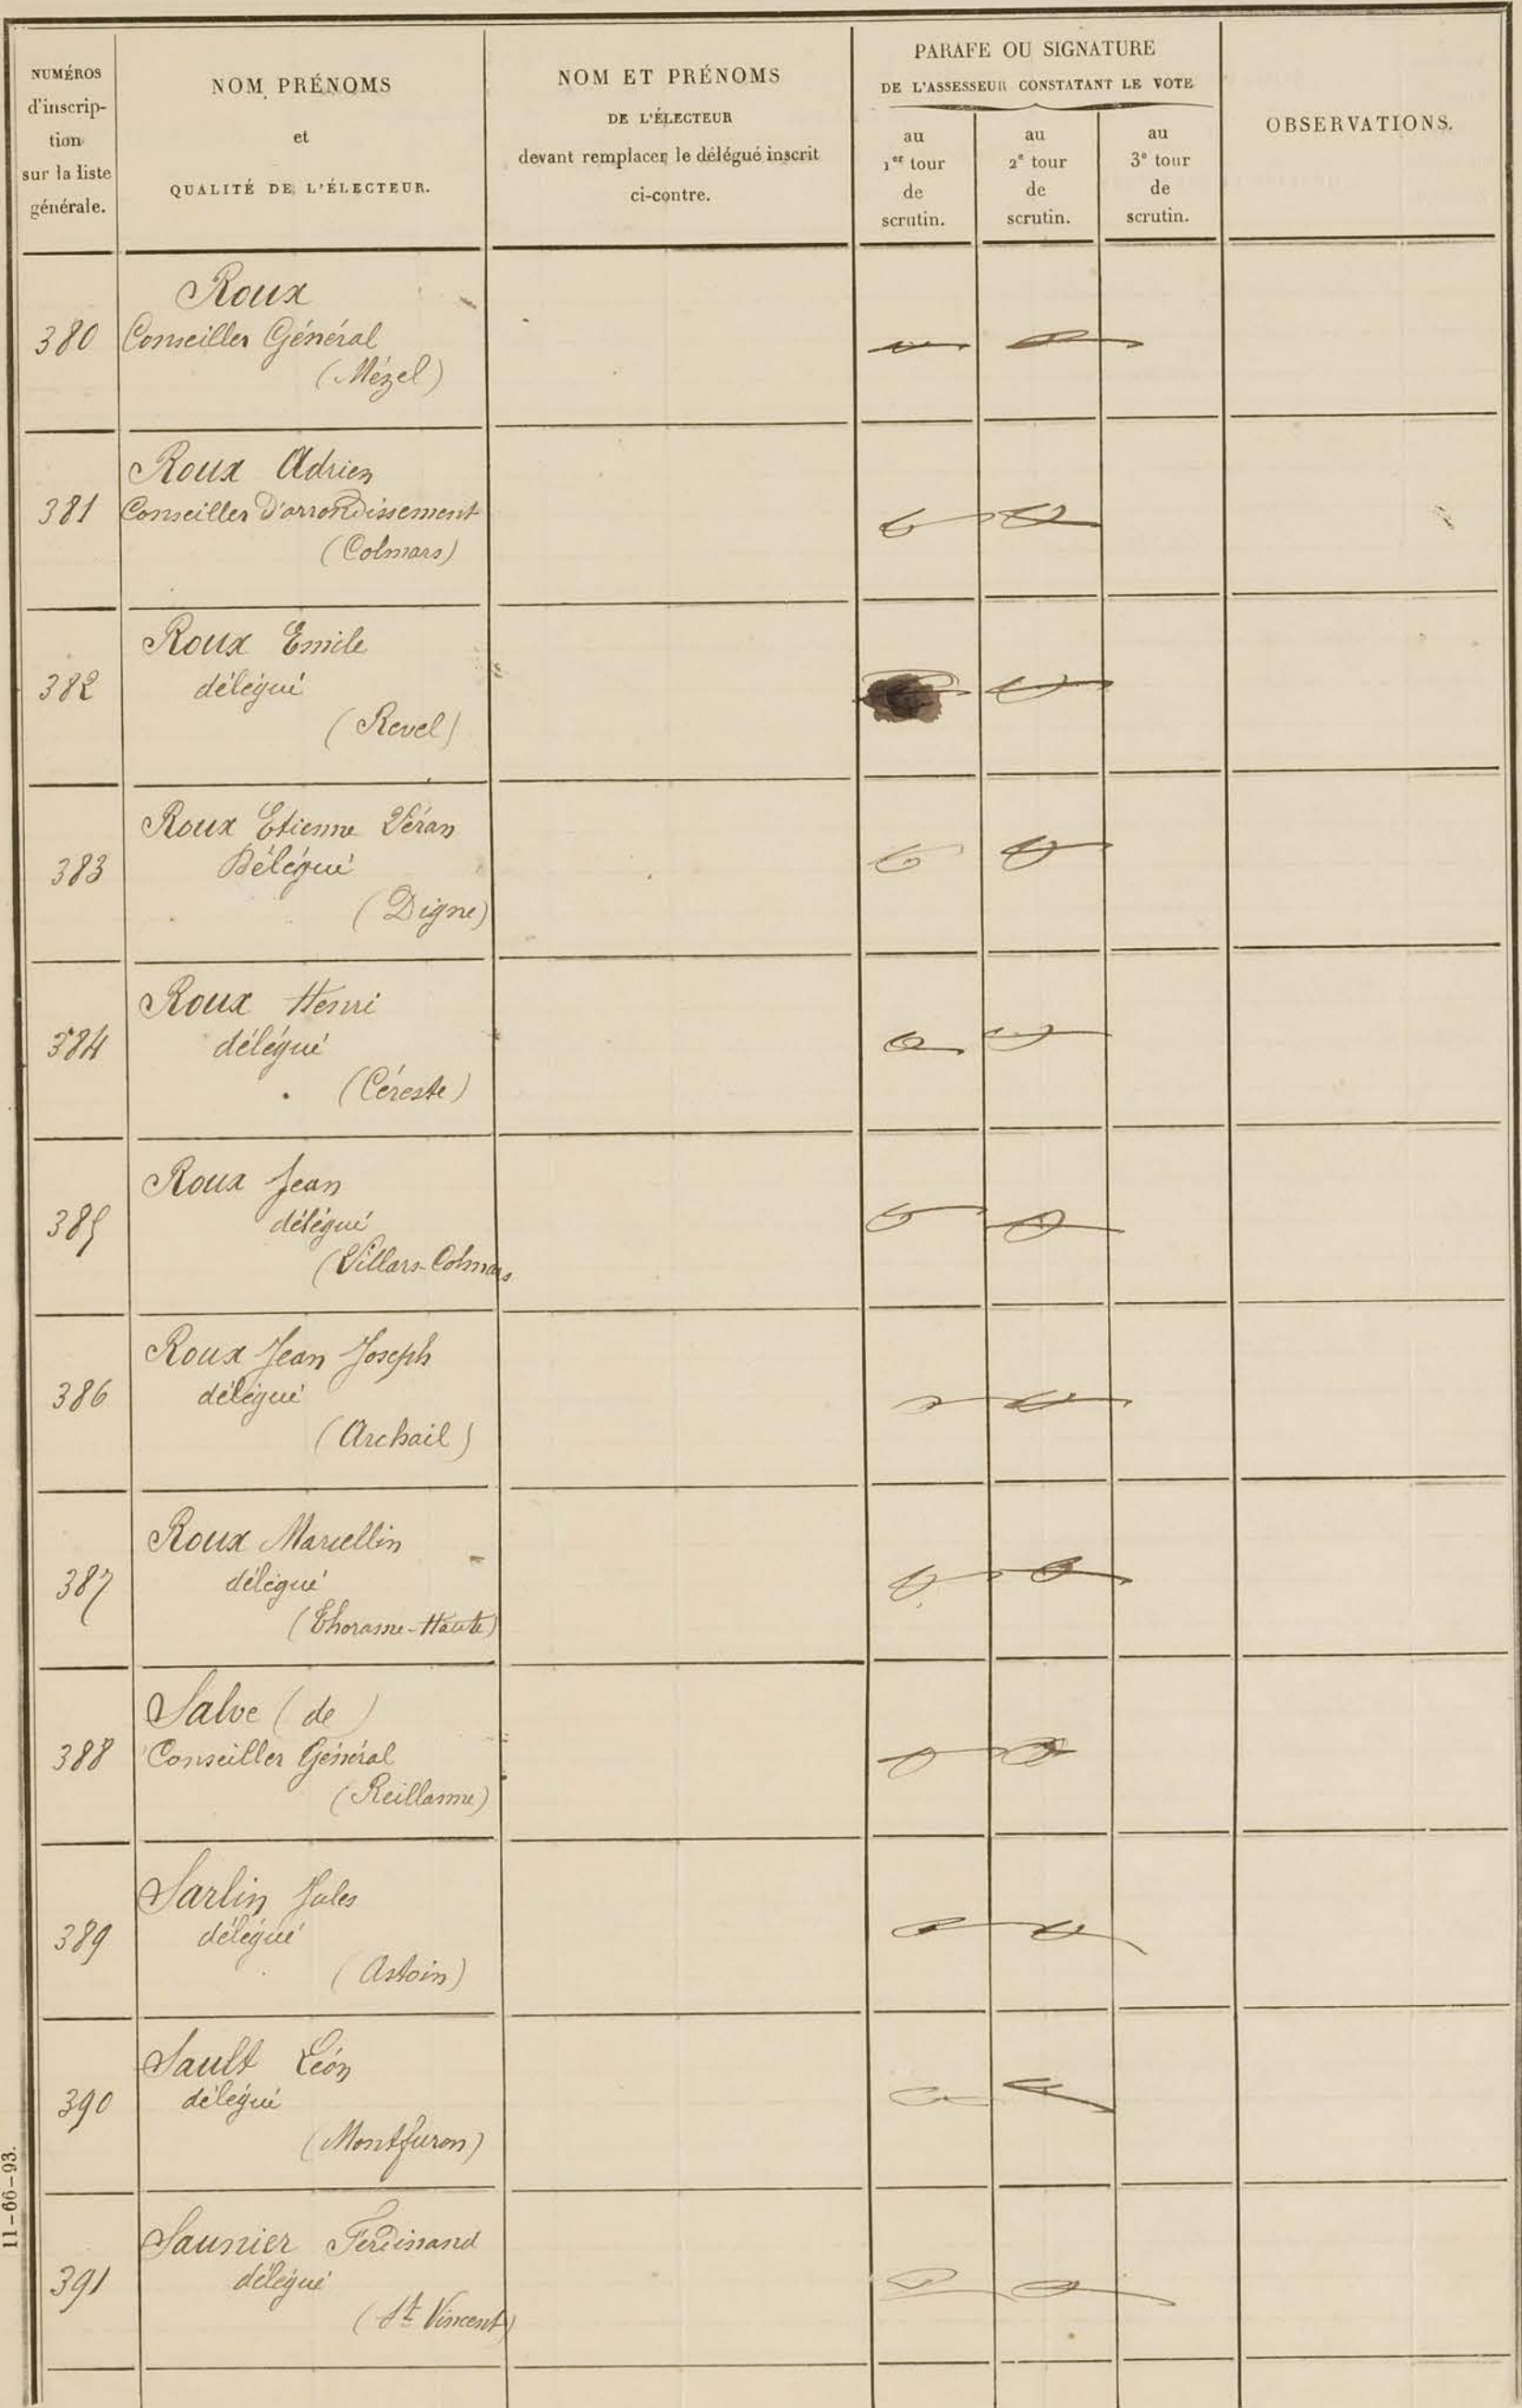 NUMÉROS
d'inscrip-
tion
sur la liste
générale.
NOM, PRÉNOMS
et
QUALITÉ DE L'ÉLECTEUR.
NOM ET PRÉNOMS
DE L'ÉLECTEUR
devant remplacer le délégué inscrit
ci-contre.
PARAFE OU SIGNATURE
DE L'ASSESSEUR CONSTATANT LE VOTE
au
1er tour
de
scrutin.
au
2e tour
de
scrutin.
au
3e tour
de
scrutin.
OBSERVATIONS.
Roux
380 Conseiller Général
(Mézel)
Roux Adrien
381 Conseiller d'arrondissement
(Colmars)
Roux Emile
382 délégué
(Revel)
Roux Etienne Véran
383 Délégué
(Digne)
Roux Henri
384 délégué
(Céreste)
Roux Jean
385 délégué
(Villars-Colmars
Roux Jean Joseph
386 délégué
(Archail)
Roux Marcellin
387 délégué
(Thorame-Haute)
Salve (de)
388 Conseiller Général
(Reillanne)
Sarlin Jules
389 délégué
(Astoin)
Sault Léon
390 délégué
(Montfuron)
Saunier Ferdinand
391 délégué
(St Vincent)
11-66-93.